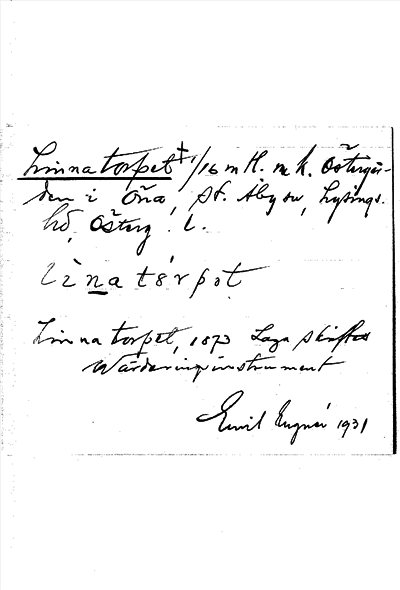 Linnatorpet ‡ 1/16 mtl. m k. Östergår-
den i Öna, St. Åby sn, Lysings
hd, Österg. l.
lìnatórpət
Linnatorpet, 1873 Laga skiftes
Wärderingsinstrument
Emil 1931